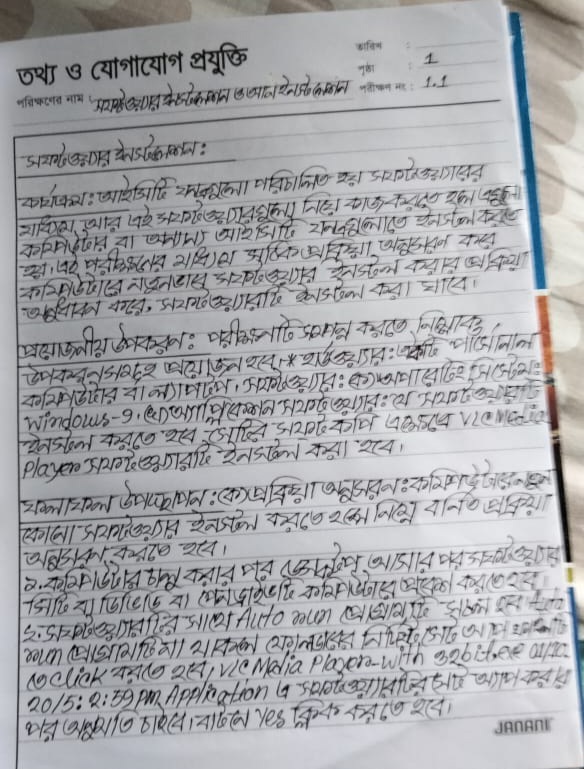 তথ্য ও যোগাযোগ প্রযুক্তি
তারিখ :
পৃষ্ঠা : 1
পরীক্ষণের নাম : সফটওয়্যার ইনস্টলেশন ও আনইনস্টলেশন পরীক্ষণ নং : 1.1
সফটওয়্যার ইনস্টলেশন :
কার্যক্রম : আইসিটি যন্ত্রগুলো পরিচালিত হয় সফটওয়্যারের
মাধ্যমে, আর এই সফটওয়্যারগুলো দিয়ে কাজ করতে হলে এগুলো
কম্পিউটার বা অন্যান্য আইসিটি যন্ত্রগুলোতে ইনস্টল করতে
হয়, এই পরীক্ষণের মাধ্যমে সঠিক প্রক্রিয়া অনুসরণ করে
কম্পিউটারে নতুনভাবে সফটওয়্যার ইনস্টল করার প্রক্রিয়া
করে, সফটওয়্যারটি ইনস্টল করা যাবে।
প্রয়োজনীয় উপকরণ : পরীক্ষণটি সম্পন্ন করতে, নিম্নোক্ত
উপকরণসমূহ প্রয়োজন হবে * হার্ডওয়্যার: একটি পার্সোনাল
কম্পিউটার বা ল্যাপটপ, সফটওয়্যার: (ক) অপারেটিং সিস্টেম:
Windows-9, (খ) অ্যাপ্লিকেশন সফটওয়্যার: যে সফটওয়্যারটি
ইনস্টল করতে হবে সেটির সফট কপি এক্ষেত্রে VLC Media
Player সফটওয়্যারটি ইনস্টল করা হবে,
ফলাফল উপস্থাপন : (ক) প্রক্রিয়া অনুসরণ : কম্পিউটারে নতুন
কোনো সফটওয়্যার ইনস্টল করতে হলে নিম্নে বর্ণিত প্রক্রিয়া
অনুসরণ করতে হবে।
১. কম্পিউটার চালু করার পর ডেস্কটপ আসার পর সফটওয়্যার
সিডি বা ডিভিডি বা পেনড্রাইভটি কম্পিউটারে প্রবেশ করতে হবে।
২. সফটওয়্যারটির সাথে Auto run প্রোগ্রামটি সচল হবে Auto
run প্রোগ্রামটি না থাকলে
click করতে হবে, VLC Media Player-with 32bit.exe
2015: 2:59 pm, Application সফটওয়্যারটির
পর অনুমতি চাইবে। Yes ক্লিক করতে হবে।
JANANI